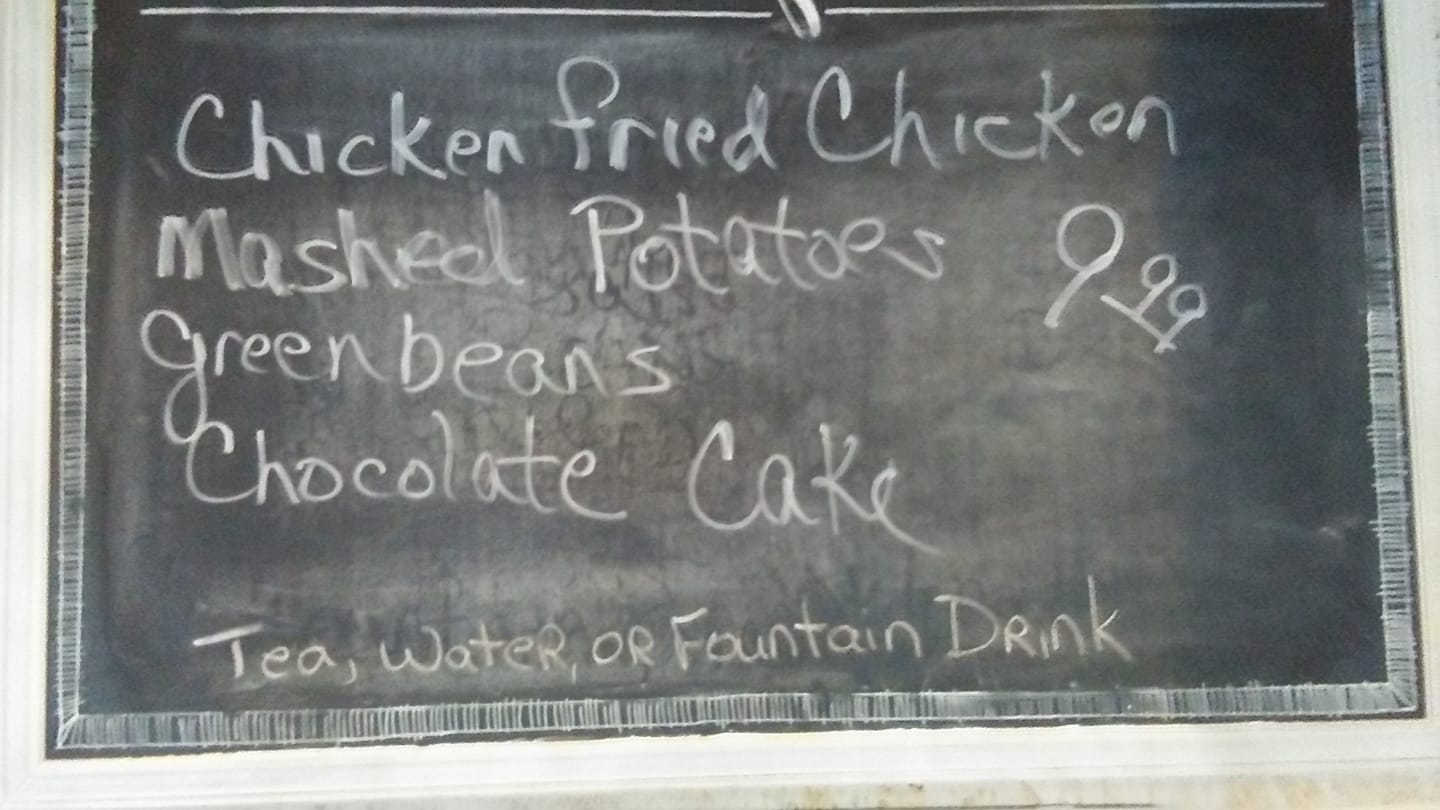 Chicken fried Chicken
Mashed Potatoes 9.99
green beans
Chocolate Cake
Tea, Water, OR Fountain DRink